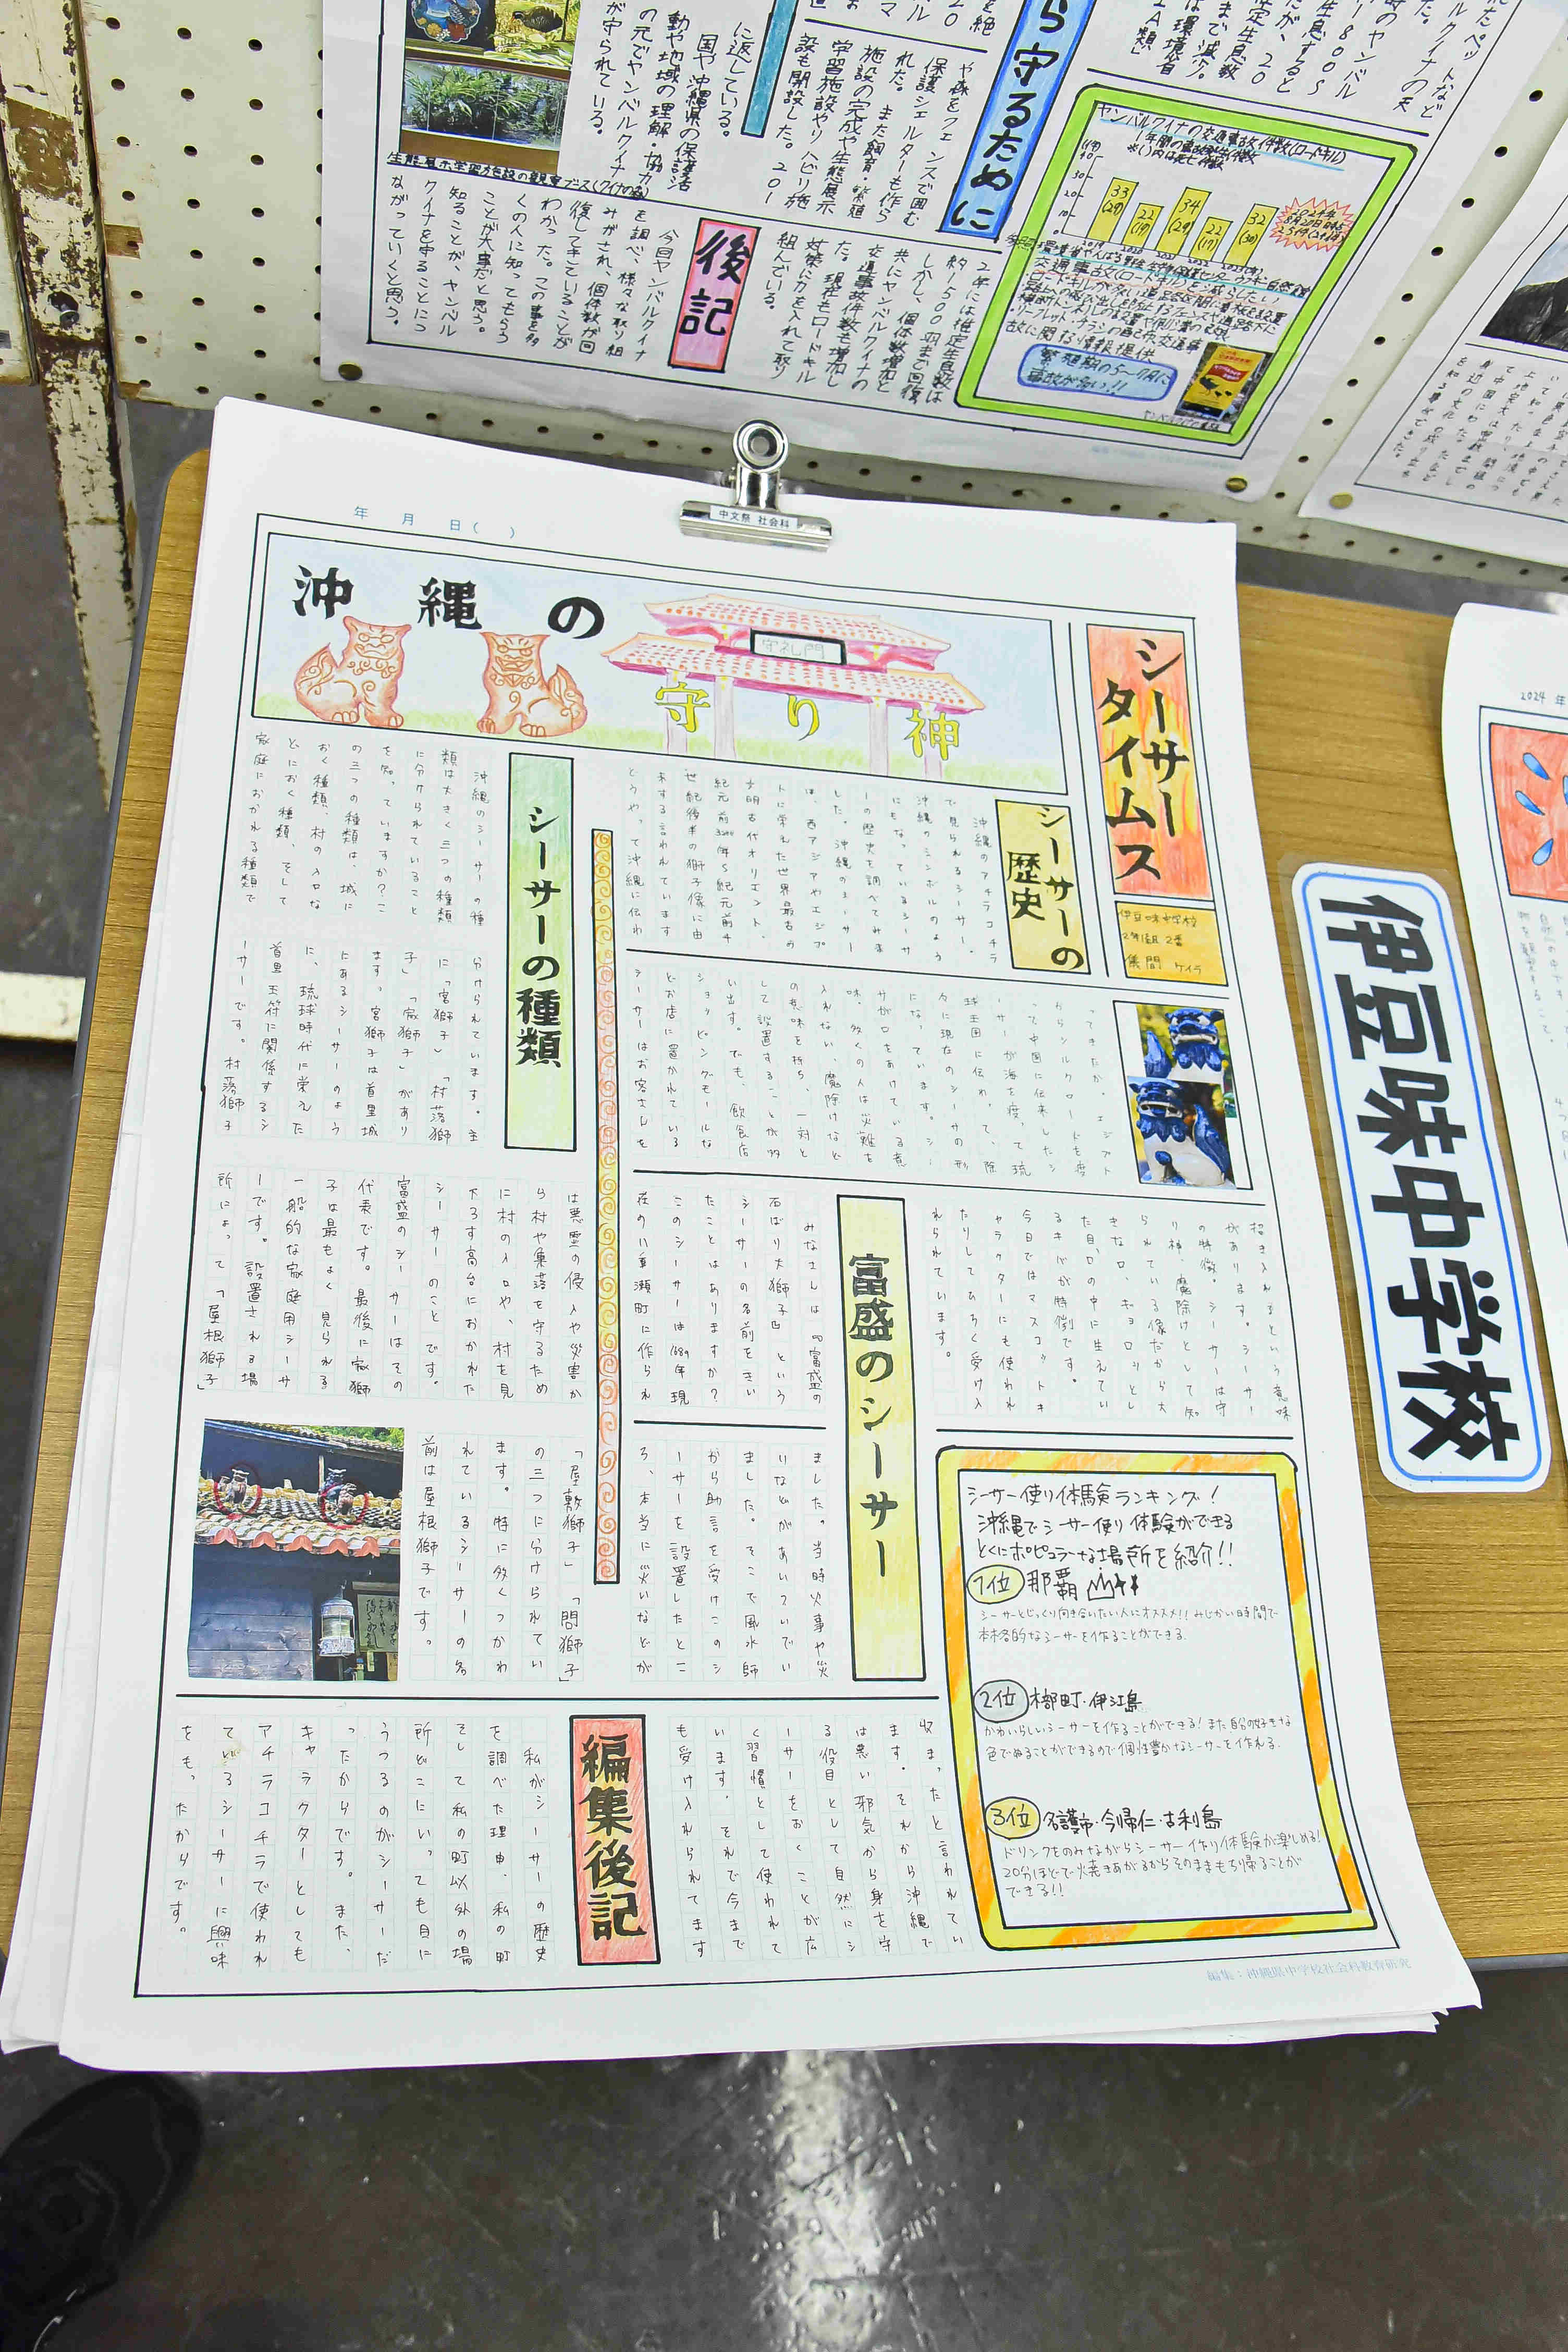 に返している。
国や沖縄県の保護活
動や地域の理解・協力
の元でヤンバルクイナ
が守られている。
保護シェルターも作ら
れた。また飼育・繁殖
施設の完成や生態展示
学習施設やリハビリ施
設も開設した。201
ら守るために
ヤンバルクイナの交通事故件数(ロードキル)
1年間の事故発生件数
※()内は死亡件数
(件)
40
30
20
10
0
33
(29)
22
(19)
34
(29)
22
(17)
32
(30)
2019
2020
2021
2022
2023(年)
交通事故(ロードキル)を減らしたい
故に関する情報提供
繁殖期の5~7月に
事故が多い!!
2年には推定生息数は
約1500羽まで回復
しかし、個体数増加と
共にヤンバルクイナの
交通事故件数も増加し
た。現在もロードキル
対策に力を入れて取り
組んでいる。
後記
今回ヤンバルクイナ
を調べ、様々な取り組
みがされ、個体数が回
復してきていることが
わかった。この事を多
くの人に知ってもらう
ことが大事だと思う。
知ることが、ヤンバル
クイナを守ることにつ
ながっていくと思う。
中文祭 社会科
年 月 日( )
沖縄の
守礼門
守り神
シーサー
タイムス
伊豆味中学校
2年1組 2番
シーサーの
歴史
沖縄のアチラコチラ
で見られるシーサー。
沖縄のシンボルのよう
にもなっているシーサ
ーの歴史を調べてみま
した。沖縄のシーサー
は、西アジアやエジプ
トに栄えた世界最古の
文明古代オリエント、
紀元前3200年~紀元前4
世紀後半の獅子像に由
来すると言われています
どうやって沖縄に伝わ
ってきたか。エジプト
からシルクロードを渡
って中国に伝来したシ
ーサーが海を渡って琉
球王国に伝わって、除
々に現在のシーサの形
になっています。シー
サーが口をあけている意
味、多くの人は災難を
入れない、魔除けなど
の意味を持ち、一対と
して設置することが多
い出す。でも、飲食店
ショッピングモールな
どお店に置かれている
シーサーはお客さんを
招き入れるという意味
があります。シーサー
の特徴。シーサーは守
り神、魔除けとして知
られている像だから大
きな口、ギョロリとし
た目、口の中に生えてい
るキバが特徴です。
今日ではマスコットキ
ャラクターにも使われ
たりしてひろく受け入
れられています。
富盛のシーサー
みなさんは『富盛の
石ぼり大獅子』という
シーサーの名前をきい
たことはありますか?
このシーサーは1689年現
在の八重瀬町に作られ
ました。当時火事や災
いなどがあいついでい
ました。そこで風水師
から助言を受けこのシ
ーサーを設置したとこ
ろ、本当に災いなどが
収まったと言われてい
ます。それから沖縄で
は悪い邪気から身を守
る役目として自然にシ
ーサーをおくことが広
く習慣として使われて
います。それで今まで
も受け入れられてます
シーサーの種類
沖縄のシーサーの種
類は大きく三つの種類
に分けられていること
を知っていますか?こ
の三つの種類は、城に
おく種類、村の入口な
どにおく種類、そして
家庭におかれる種類で
分けられています。主
に「宮獅子」「村落獅
子」「家獅子」があり
ます。宮獅子は首里城
にあるシーサーのよう
に、琉球時代に栄えた
首里王府に関係するシ
ーサーです。村落獅子
は悪霊の侵入や災害か
ら村や集落を守るため
に村の入口や、村を見
下ろす高台におかれた
シーサーのことです。
富盛のシーサーはその
代表です。最後に家獅
子は最もよく見られる
一般的な家庭用シーサ
ーです。設置される場
所によって「屋根獅子」
「屋敷獅子」「門獅子」
の三つに分けられてい
ます。特に多くつかわ
れているシーサーの名
前は屋根獅子です。
シーサー作り体験ランキング!
沖縄でシーサー作り体験ができる
とくにポピュラーな場所を紹介!!
1位 那覇
シーサーとじっくり向き合いたい人にオススメ!!みじかい時間で
本格的なシーサーを作ることができる.
2位 本部町・伊江島
かわいらしいシーサーを作ることができる!また自分の好きな
色でぬることができるので個性豊かなシーサーを作れる.
3位 名護市・今帰仁・古利島
ドリンクをのみながらシーサー作り体験が楽しめる!
20分ほどで焼きあがるからそのままもち帰ることが
できる!!
編集後記
私がシーサーの歴史
を調べた理由、私の町
そして私の町以外の場
所どこにいっても目に
うつるのがシーサーだ
ったからです。また、
キャラクターとしても
アチラコチラで使われ
ているシーサーに興味
をもったからです。
編集:沖縄県中学校社会科教育研究
伊豆味中学校
2024 年